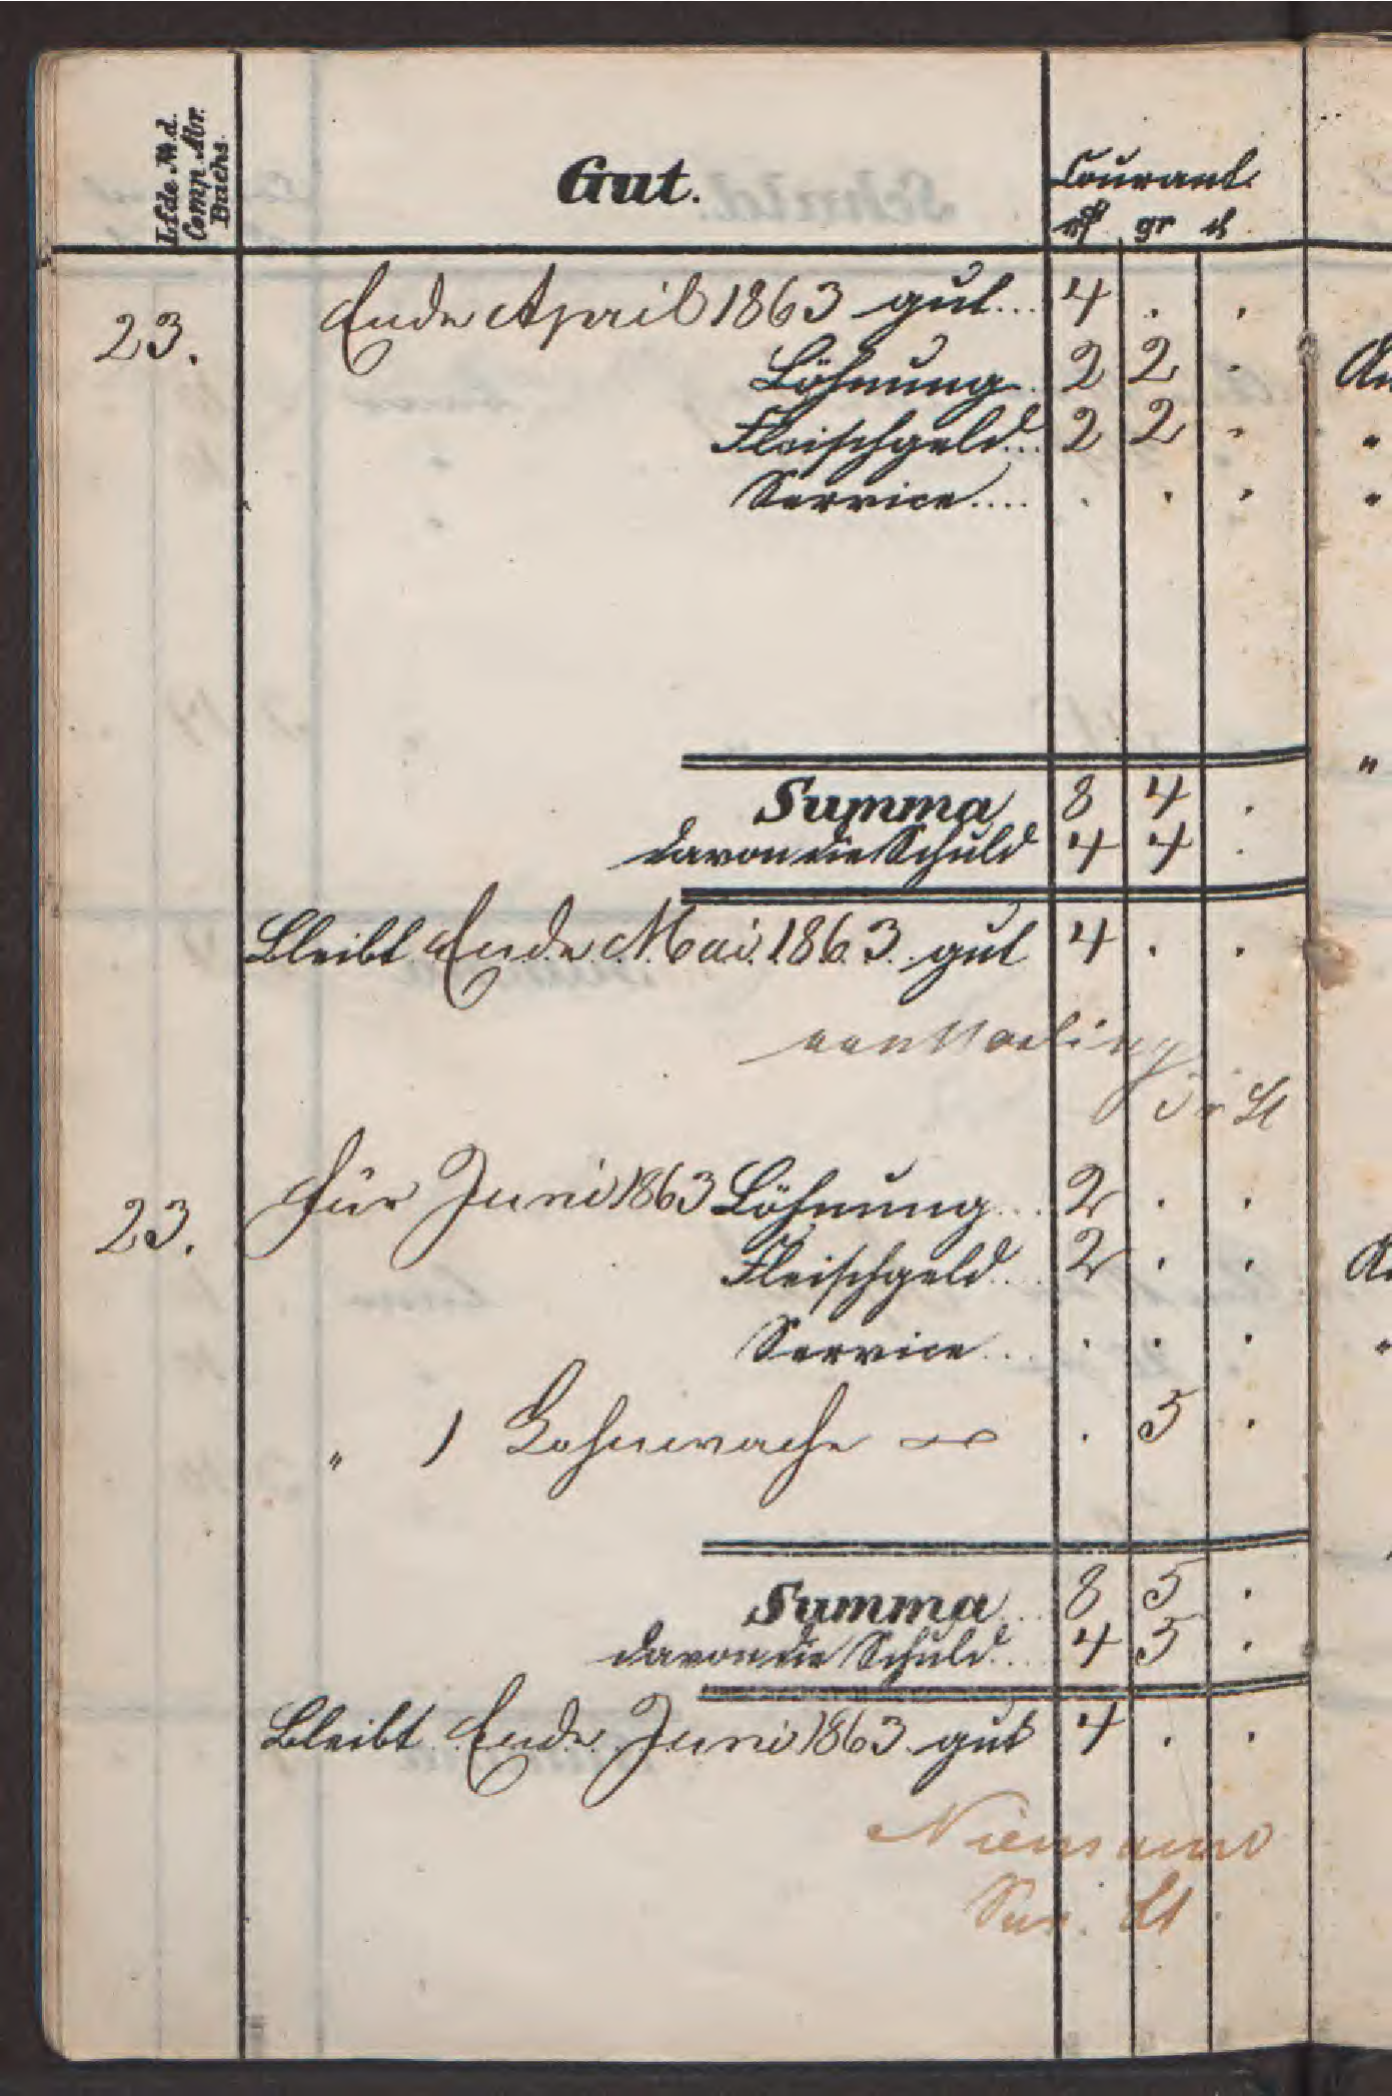 Lfde N. d. Comp. Abr. Buchs.
Gut.
Courant.
rℓ gr ₰
23.
Ende April 1863 gut... 4 . .
Löhnung. 2 2 .
Fleischgeld... 2 2 .
Service.... . . .
Summa 8 4 .
davon die Schuld 4 4 .
Bleibt Ende Mai 1863. gut 4 . .
Lt
23.
für Juni 1863 Löhnung... 2 . .
Fleischgeld... 2 . .
Service... . . .
" ) Lohnwache . 5 .
Summa... 8 5 .
davon die Schuld... 4 5 .
Bleibt Ende Juni 1863. gut 4 . .
Niemann
Lt